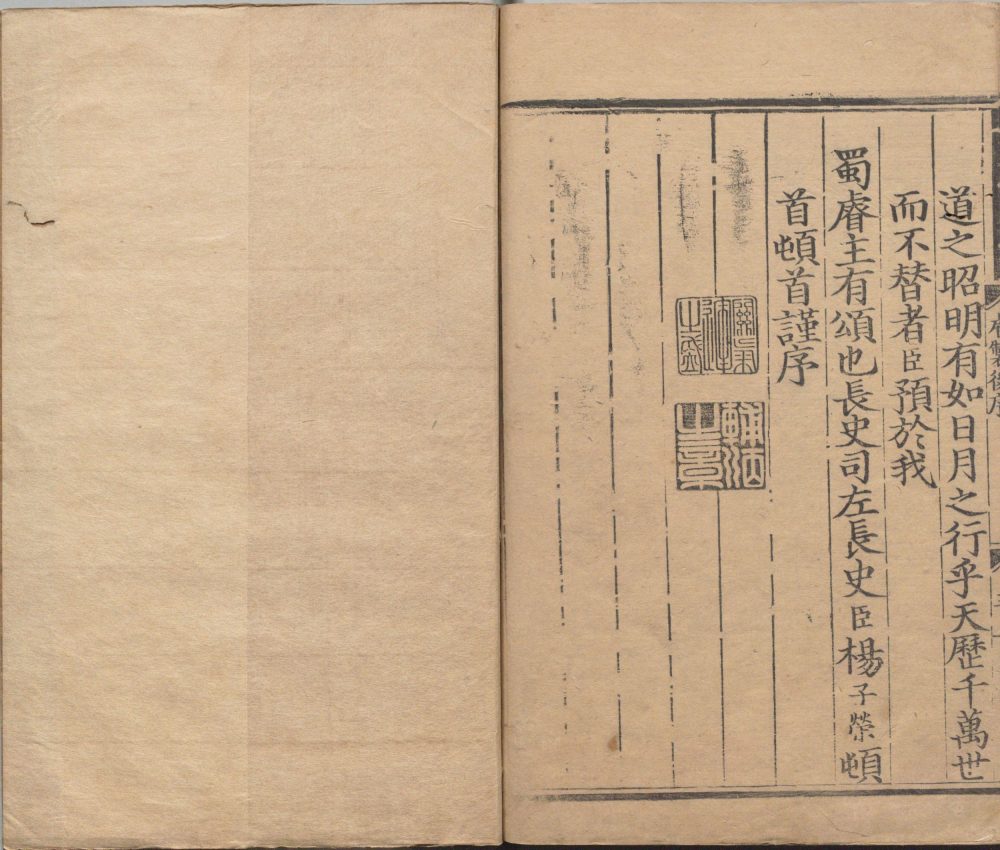 後序
道之昭明有如日月之行乎天歷千萬世
而不替者臣預於我
蜀睿主有頌也長史司左長史臣楊子榮頓
首頓首謹序
輔法